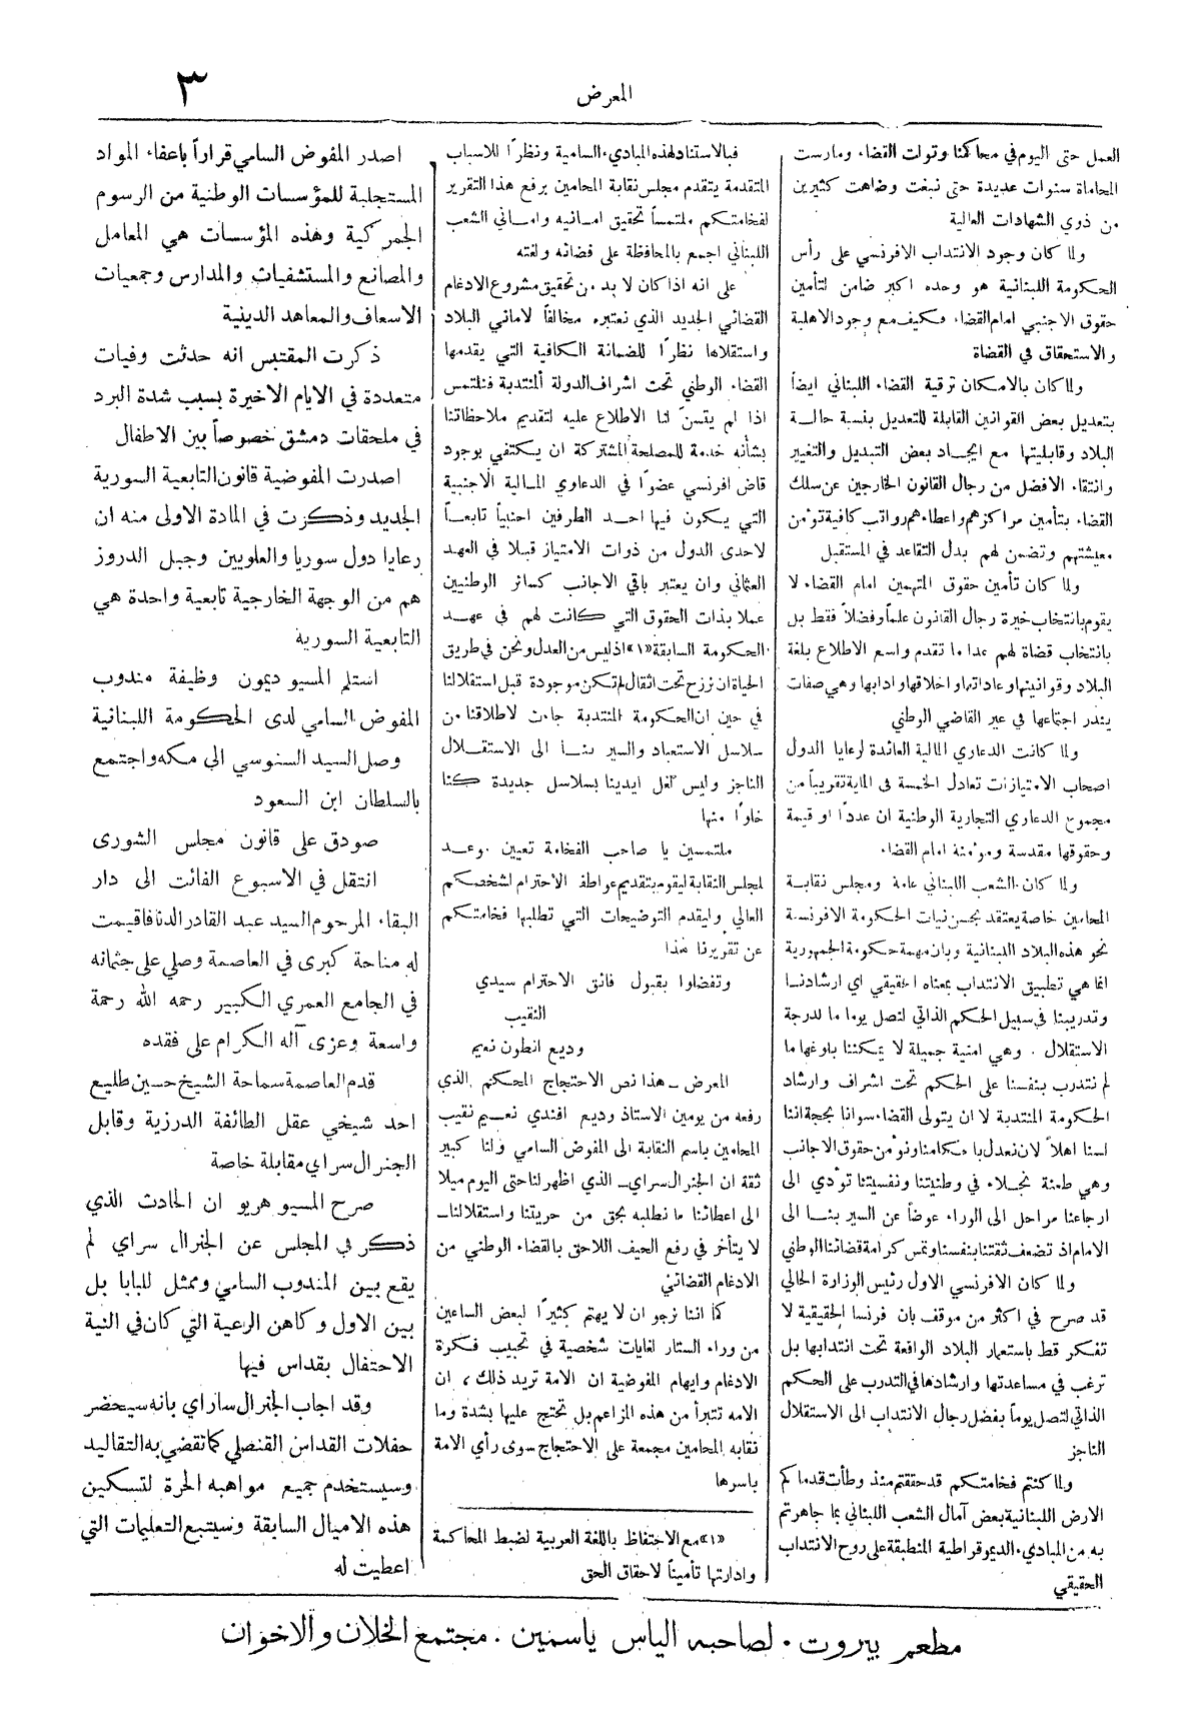 المعرض
٣
العمل حتى اليوم في محاكمنا وتولت القضاء ومارست
المحاماة سنوات عديدة حتى نبغت وضاهت كثيرين
من ذوي الشهادات العالية
ولما كان وجود الانتداب الافرنسي على رأس
الحكومة اللبنانية هو وحده اكبر ضامن لتأمين
حقوق الاجنبي امام القضاء فكيف مع وجود الاهلية
والاستحقاق في القضاة
ولما كان بالامكان ترقية القضاء اللبناني ايضاً
بتعديل بعض القوانين القابلة للتعديل بنسبة حالة
البلاد وقابليتها مع ايجاد بعض التبديل والتغيير
وانتقاء الافضل من رجال القانون الخارجين عن سلك
القضاء بتأمين مراكزهم واعطاءهم رواتب كافية تؤمن
معيشتهم وتضمن لهم بدل التقاعد في المستقبل
ولما كان تأمين حقوق المتهمين امام القضاء لا
يقوم بانتخاب خيرة رجال القانون علماً وفضلاً فقط بل
بانتخاب قضاة لهم عدا ما تقدم واسع الاطلاع بلغة
البلاد وقوانينها وعاداتها واخلاقها وادابها وهي صفات
يندر اجتماعها في غير القاضي الوطني
ولما كانت الدعاوي المالية العائدة لرعايا الدول
اصحاب الامتيازات تعادل الخمسة في الماية تقريباً من
مجموع الدعاوي التجارية الوطنية ان عدداً او قيمة
وحقوقها مقدسة ومؤمنة امام القضاء
ولما كان الشعب اللبناني عامة ومجلس نقابة
المحامين خاصة يعتقد بحسن نيات الحكومة الافرنسية
نحو هذه البلاد اللبنانية وبان مهمة حكومة الجمهورية
انما هي تطبيق الانتداب بمعناه الحقيقي اي ارشادنا
وتدريبنا في سبيل الحكم الذاتي لنصل يوما ما لدرجة
الاستقلال . وهي امنية جميلة لا يمكننا بلوغها ما
لم نتدرب بنفسنا على الحكم تحت اشراف وارشاد
الحكومة المنتدبة لا ان يتولى القضاء سوانا بحجة اننا
لسنا اهلاً لان نعدل باحكامنا ونؤمن حقوق الاجانب
وهي طعنة نجلاء في وطنيتنا ونفسيتنا تؤدي الى
ارجاعنا مراحل الى الوراء عوضاً عن السير بنا الى
الامام اذ تضعف ثقتنا بنفسنا وتمس كرامة قضائنا الوطني
ولما كان الافرنسي الاول رئيس الوزارة الحالي
قد صرح في اكثر من موقف بان فرنسا الحقيقية لا
تفكر قط باستعمار البلاد الواقعة تحت انتدابها بل
ترغب في مساعدتها وارشادها في التدرب على الحكم
الذاتي لتصل يوماً بفضل رجال الانتداب الى الاستقلال
الناجز
ولما كنتم فخامتكم قد حققتم منذ وطأت قدماكم
الارض اللبنانية بعض آمال الشعب اللبناني بما جاهرتم
به من المبادىء الديموقراطية المنطبقة على روح الانتداب
الحقيقي
فبالاستناد لهذه المبادىء السامية ونظراً للاسباب
المتقدمة يتقدم مجلس نقابة المحامين برفع هذا التقرير
لفخامتكم ملتمساً تحقيق امانيه واماني الشعب
اللبناني اجمع بالمحافظة على قضائه ولغته
على انه اذا كان لا بد من تحقيق مشروع الادغام
القضائي الجديد الذي نعتبره مخالفاً لاماني البلاد
واستقلالها نظراً للضمانة الكافية التي يقدمها
القضاء الوطني تحت اشراف الدولة المنتدبة فنلتمس
اذا لم يتسنّ لنا الاطلاع عليه لتقديم ملاحظاتنا
بشأنه خدمة للمصلحة المشتركة ان يكتفي بوجود
قاض افرنسي عضواً في الدعاوي المالية الاجنبية
التي يكون فيها احد الطرفين اجنبياً تابعاً
لاحدى الدول من ذوات الامتياز قبلا في العهد
العثماني وان يعتبر باقي الاجانب كسائر الوطنيين
عملا بذات الحقوق التي كانت لهم في عهد
الحكومة السابقة «١» اذ ليس من العدل ونحن في طريق
الحياة ان نرزح تحت اثقال لم تكن موجودة قبل استقلالنا
في حين ان الحكومة المنتدبة جاءت لاطلاقنا من
سلاسل الاستعباد والسير بنا الى الاستقلال
الناجز وليس لغل ايدينا بسلاسل جديدة كنا
خلواً منها
ملتمسين يا صاحب الفخامة تعيين موعد
لمجلس النقابة ليقوم بتقديم عواطف الاحترام لشخصكم
العالي وليقدم التوضيحات التي تطلبها فخامتكم
عن تقريرنا هذا
وتفضلوا بقبول فائق الاحترام سيدي
النقيب
وديع انطون نعيم
المعرض ــ هذا نص الاحتجاج المحكم الذي
رفعه من يومين الاستاذ وديع افندي نعيم نقيب
المحامين باسم النقابة الى المفوض السامي ولنا كبير
ثقة ان الجنرال سراي الذي اظهر لنا حتى اليوم ميلا
الى اعطائنا ما نطلبه بحق من حريتنا واستقلالنا
لا يتأخر في رفع الحيف اللاحق بالقضاء الوطني من
الادغام القضائي
كما اننا نرجو ان لا يهتم كثيراً لبعض الساعين
من وراء الستار لغايات شخصية في تحبيب فكرة
الادغام وايهام المفوضية ان الامة تريد ذلك ، ان
الامه تتبرأ من هذه المزاعم بل تحتج عليها بشدة وما
نقابه المحامين مجمعة على الاحتجاج سوى رأي الامة
باسرها
«١» مع الاحتفاظ باللغة العربية لضبط المحاكمة
وادارتها تأميناً لاحقاق الحق
اصدر المفوض السامي قراراً باعفاء المواد
المستجلبة للمؤسسات الوطنية من الرسوم
الجمركية وهذه المؤسسات هي المعامل
والمصانع والمستشفيات والمدارس وجمعيات
الاسعاف والمعاهد الدينية
ذكرت المقتبس انه حدثت وفيات
متعددة في الايام الاخيرة بسبب شدة البرد
في ملحقات دمشق خصوصاً بين الاطفال
اصدرت المفوضية قانون التابعية السورية
الجديد وذكرت في المادة الاولى منه ان
رعايا دول سوريا والعلويين وجبل الدروز
هم من الوجهة الخارجية تابعية واحدة هي
التابعية السورية
استلم المسيو ديمون وظيفة مندوب
المفوض السامي لدى الحكومة اللبنانية
وصل السيد السنوسي الى مكه واجتمع
بالسلطان ابن السعود
صودق على قانون مجلس الشورى
انتقل في الاسبوع الفائت الى دار
البقاء المرحوم السيد عبد القادر الدنا فاقيمت
له مناحة كبرى في العاصمة وصلي على جثمانه
في الجامع العمري الكبير رحمه الله رحمة
واسعة وعزى آله الكرام على فقده
قدم العاصمة سماحة الشيخ حسين طليع
احد شيخي عقل الطائفة الدرزية وقابل
الجنرال سراي مقابلة خاصة
صرح المسيو هريو ان الحادث الذي
ذكر في المجلس عن الجنرال سراي لم
يقع بين المندوب السامي وممثل للبابا بل
بين الاول وكاهن الرعية التي كان في النية
الاحتفال بقداس فيها
وقد اجاب الجنرال ساراي بانه سيحضر
حفلات القداس القنصلي كما تقضي به التقاليد
وسيستخدم جميع مواهبه الحرة لتسكين
هذه الاميال السابقة وسيتبع التعليمات التي
اعطيت له
مطعم بيروت . لصاحبه الياس ياسمين . مجتمع الخلان والاخوان